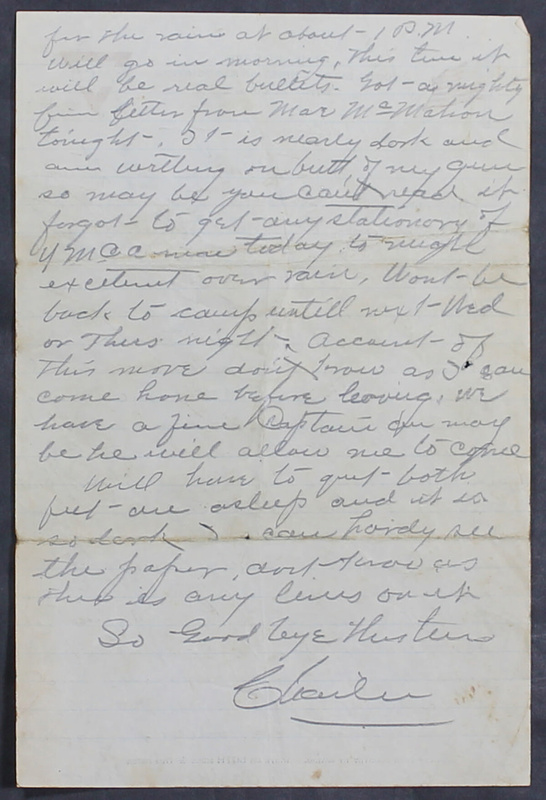 for the rain at about 1 P.M.
will go in morning, this time it
will be real bullets. Got a mighty
fine letter from Mar McMahon
tonight. It is nearly dark and
am writting on butt of my gun
so may be you can't read it
forgot to get any stationary of
Y M C C now today to much
excitment over rain, Wont be
back to camp untill next Wed
or Thurs night. Account of
this move don't know as I can
come home before leaving. We
have a fine Captain an may
be he will allow me to come
Will have to quit both
feet are asleep and it so
so dark I can hardy see
the paper, dont know as
ther is any lines on it
So Good bye
Charlie